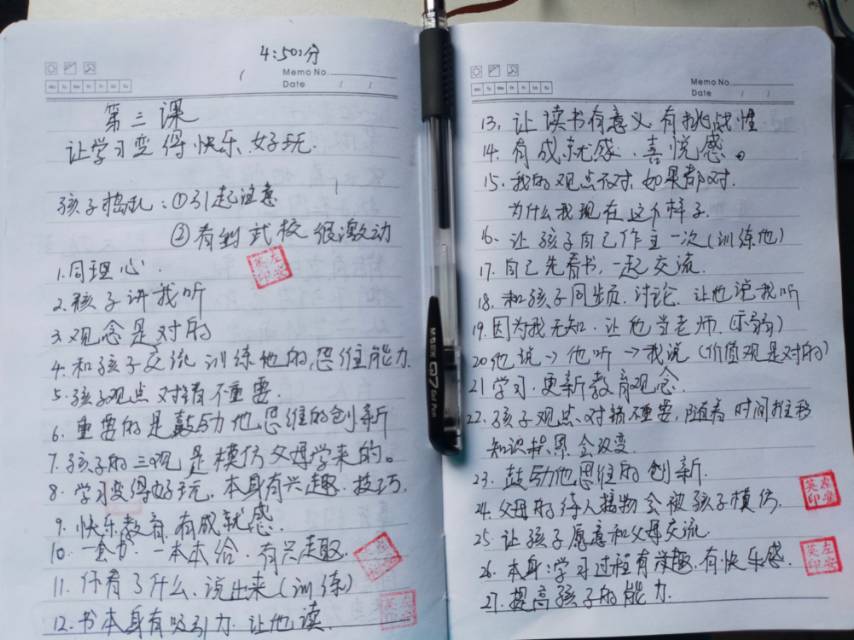 4:50分
Memo No.
Date / /
第三课
让学习变得快乐、好玩.
孩子捣乱:①引起注意
②看到试校很激动
1.同理心.
2.孩子讲我听
3.观念是对的
4.和孩子交流 训练他的思维能力.
5.孩子观点 对错不重要.
6.重要的是鼓动他思维的创新
7.孩子的三观是模仿父母学来的。
8.学习变得好玩.本身有兴趣.技巧.
9.快乐教育.有成就感.
10.一套书.一本本给.有兴趣.
11.你看了什么.说出来(训练)
12.书本身有吸引力.让他读.
Memo No.
Date / /
13.让读书有意义.有挑战性
14.有成就感、喜悦感。
15.我的观点不对.如果都对.
为什么我现在这个样子.
16.让孩子自己作主一次(训练他)
17.自己先看书.一起交流.
18.和孩子同步页.讨论.让他说我听
19.因为我无知.让他当老师.(示弱)
20他说→他听→我说(价值观是对的)
21学习.更新教育观念.
22.孩子观点.对错不重要,随着时间推移
知识积累会改变.
23.鼓动他思维的创新.
24.父母的待人接物会被孩子模仿.
25.让孩子愿意和父母交流.
26.本身:学习过程有兴趣.有快乐感.
27.提高孩子的能力.
M&G
G7
Gel Pen